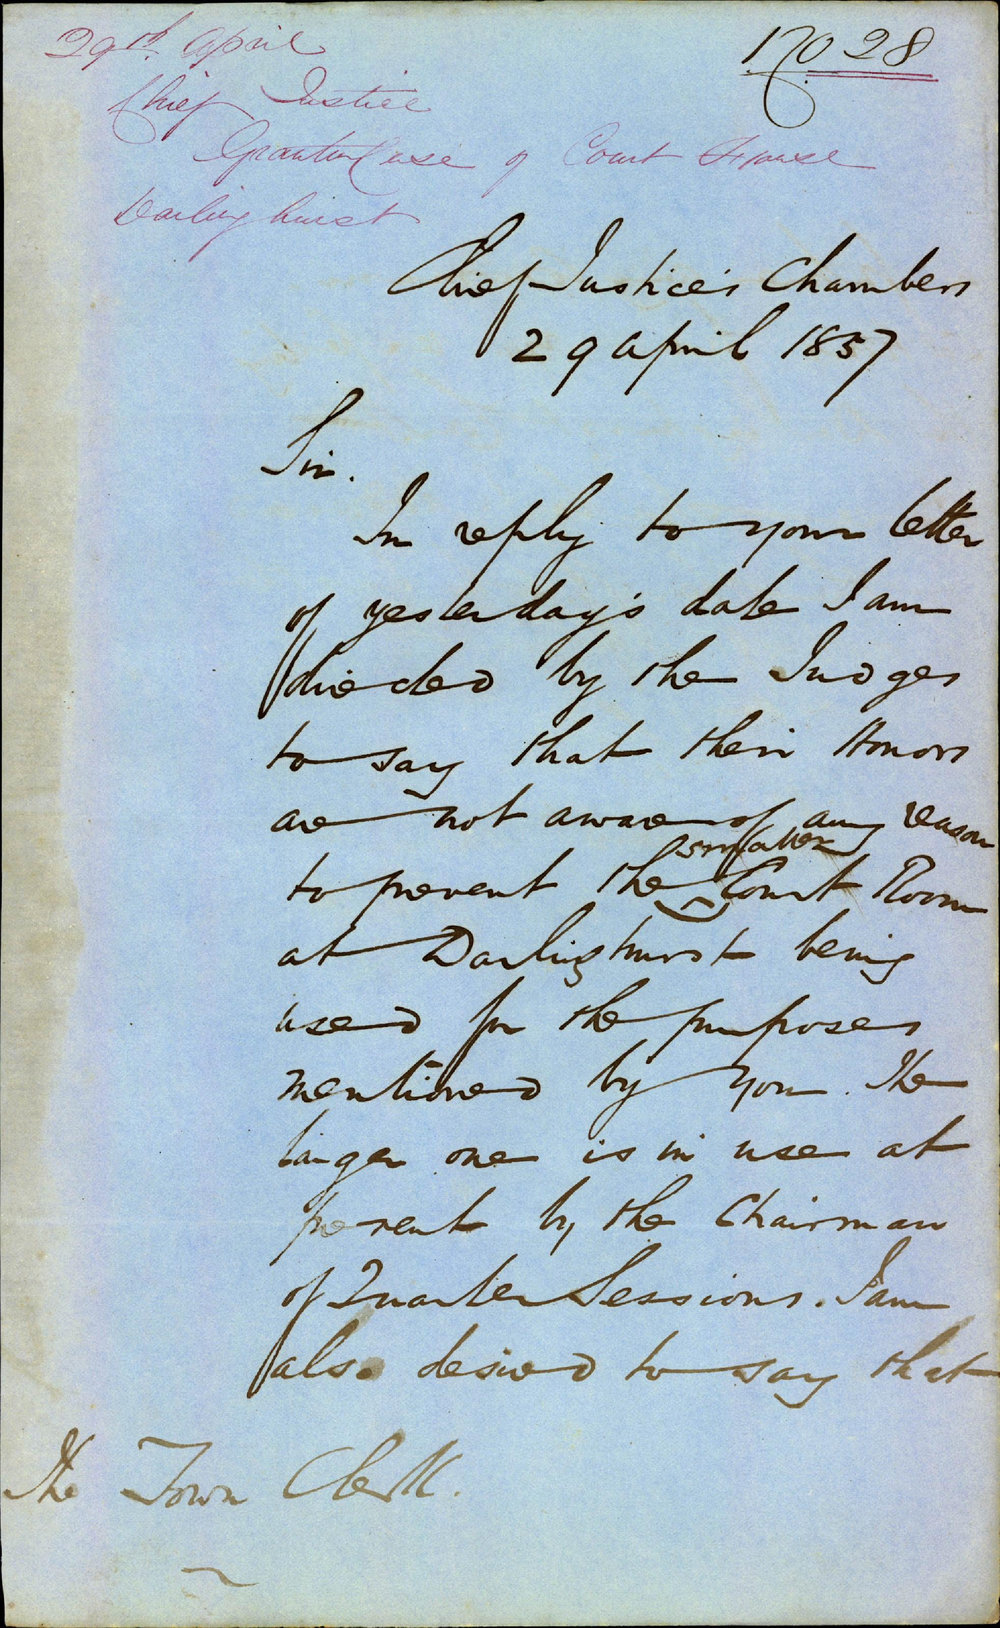 29th April
No 28
Chief Justice
Granting use of Court House
Darlinghurst
Chief Justice's Chambers
29 April 1857
Sir.
In reply to your letter
of yesterday's date I am
directed by the Judges
to say that their Honors
are not aware of any reason
smaller
to prevent the Court Room
at Darlinghurst being
used for the purposes
mentioned by you. The
larger one is in use at
present by the Chairman
of Quarter Sessions. I am
also desired to say that
The Town Clerk.